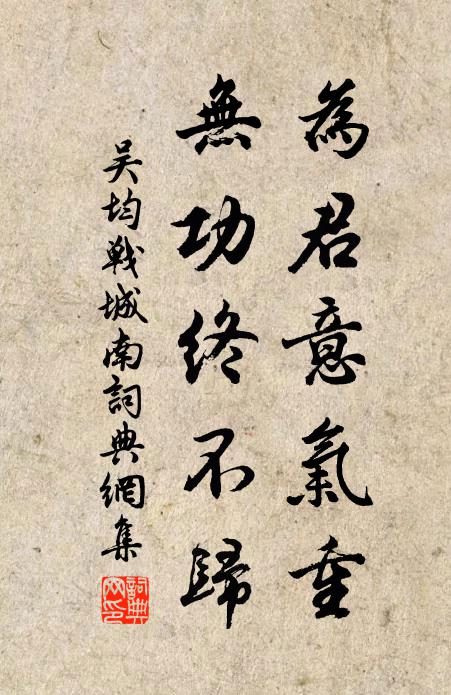 為君意氣重
無功終不歸
吴均戰城南詞典網集
詞典
网印